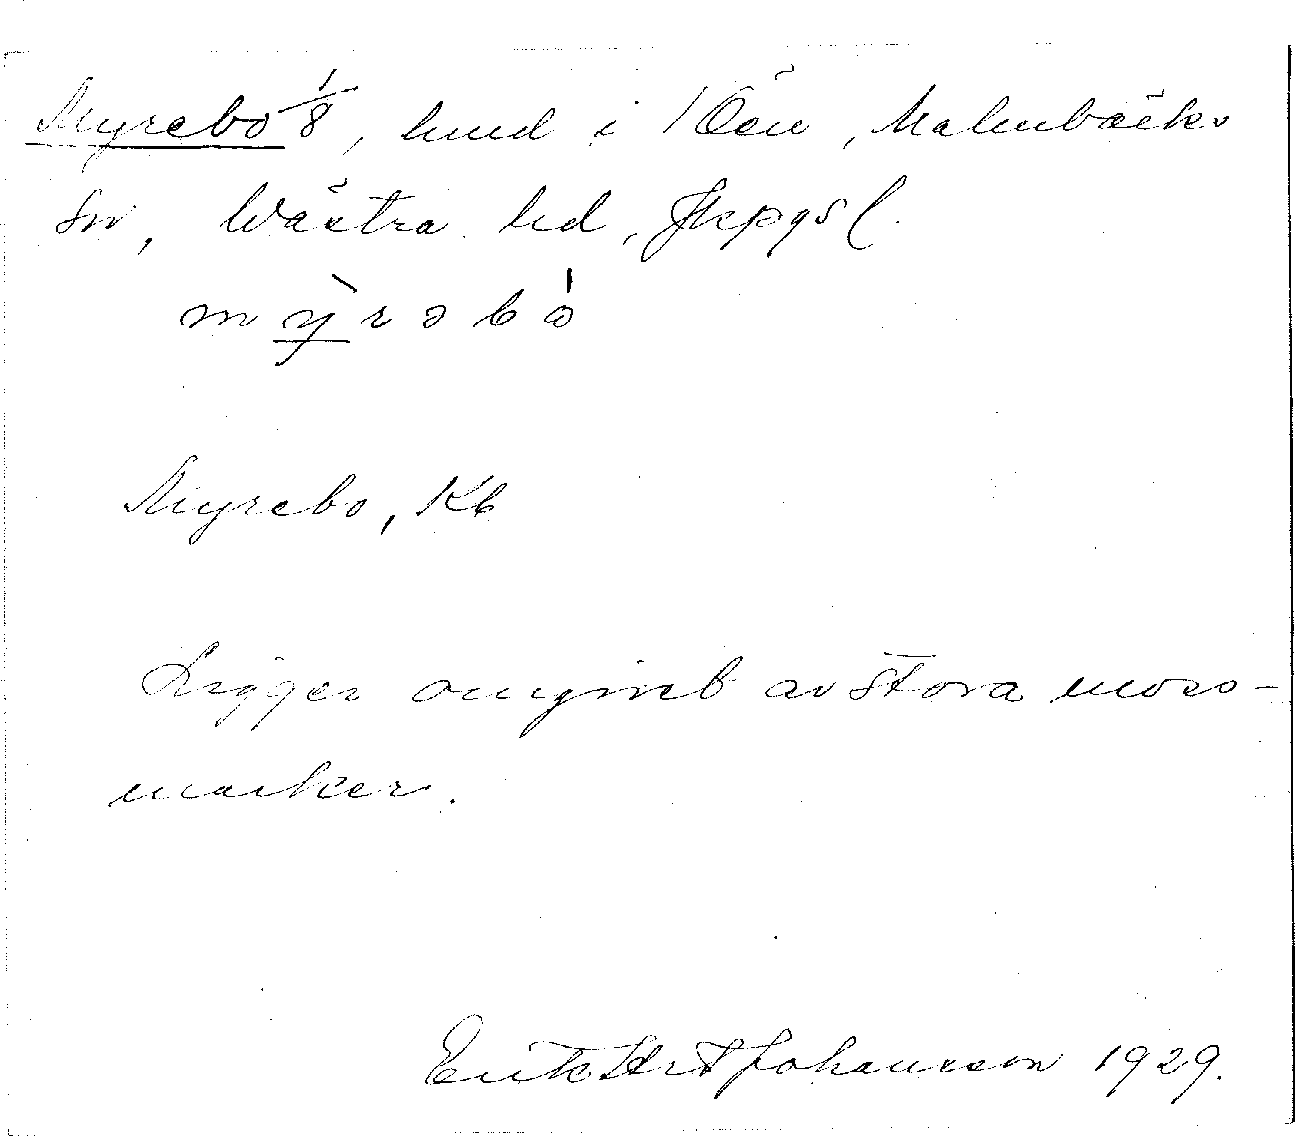 Myrebo 1/8, hmd i Öen, Malmbäcks
sn, Västra hd, Jkpgs l.
mỳrəbò
Myrebo, Kb
Ligger omgivet av stora moss-
marker.
Erik Johansson 1929.